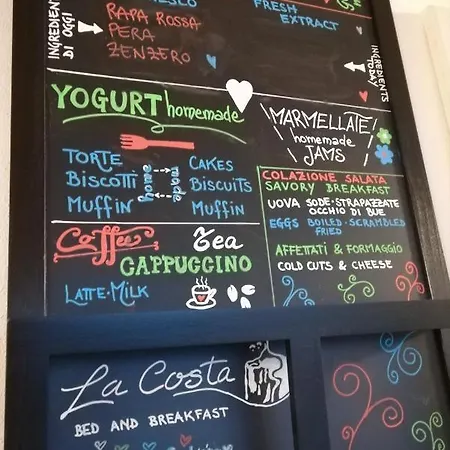 FRESH
EXTRACT
INGREDIENTI
DI OGGI
RAPA ROSSA
PERA
ZENZERO
INGREDIENTS
TODAY
YOGURT homemade
TORTE
BISCOTTI
MUFFIN
home
made
CAKES
BISCUITS
MUFFIN
MARMELLATE
homemade
JAMS
COLAZIONE SALATA
SAVORY BREAKFAST
UOVA SODE-STRAPAZZATE
OCCHIO DI BUE
EGGS BOILED-SCRAMBLED
FRIED
AFFETTATI & FORMAGGIO
COLD CUTS & CHEESE
Coffee Tea
CAPPUCCINO
LATTE-MILK
La Costa
BED AND BREAKFAST